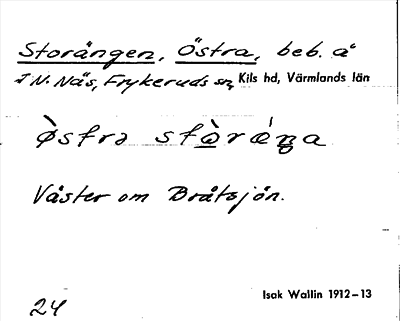 Storängen, Östra, beb. å
N. Näs, Frykeruds sn, Kils hd, Värmlands län
Väster om Bråtsjön.
Isak Wallin 1912–13
24